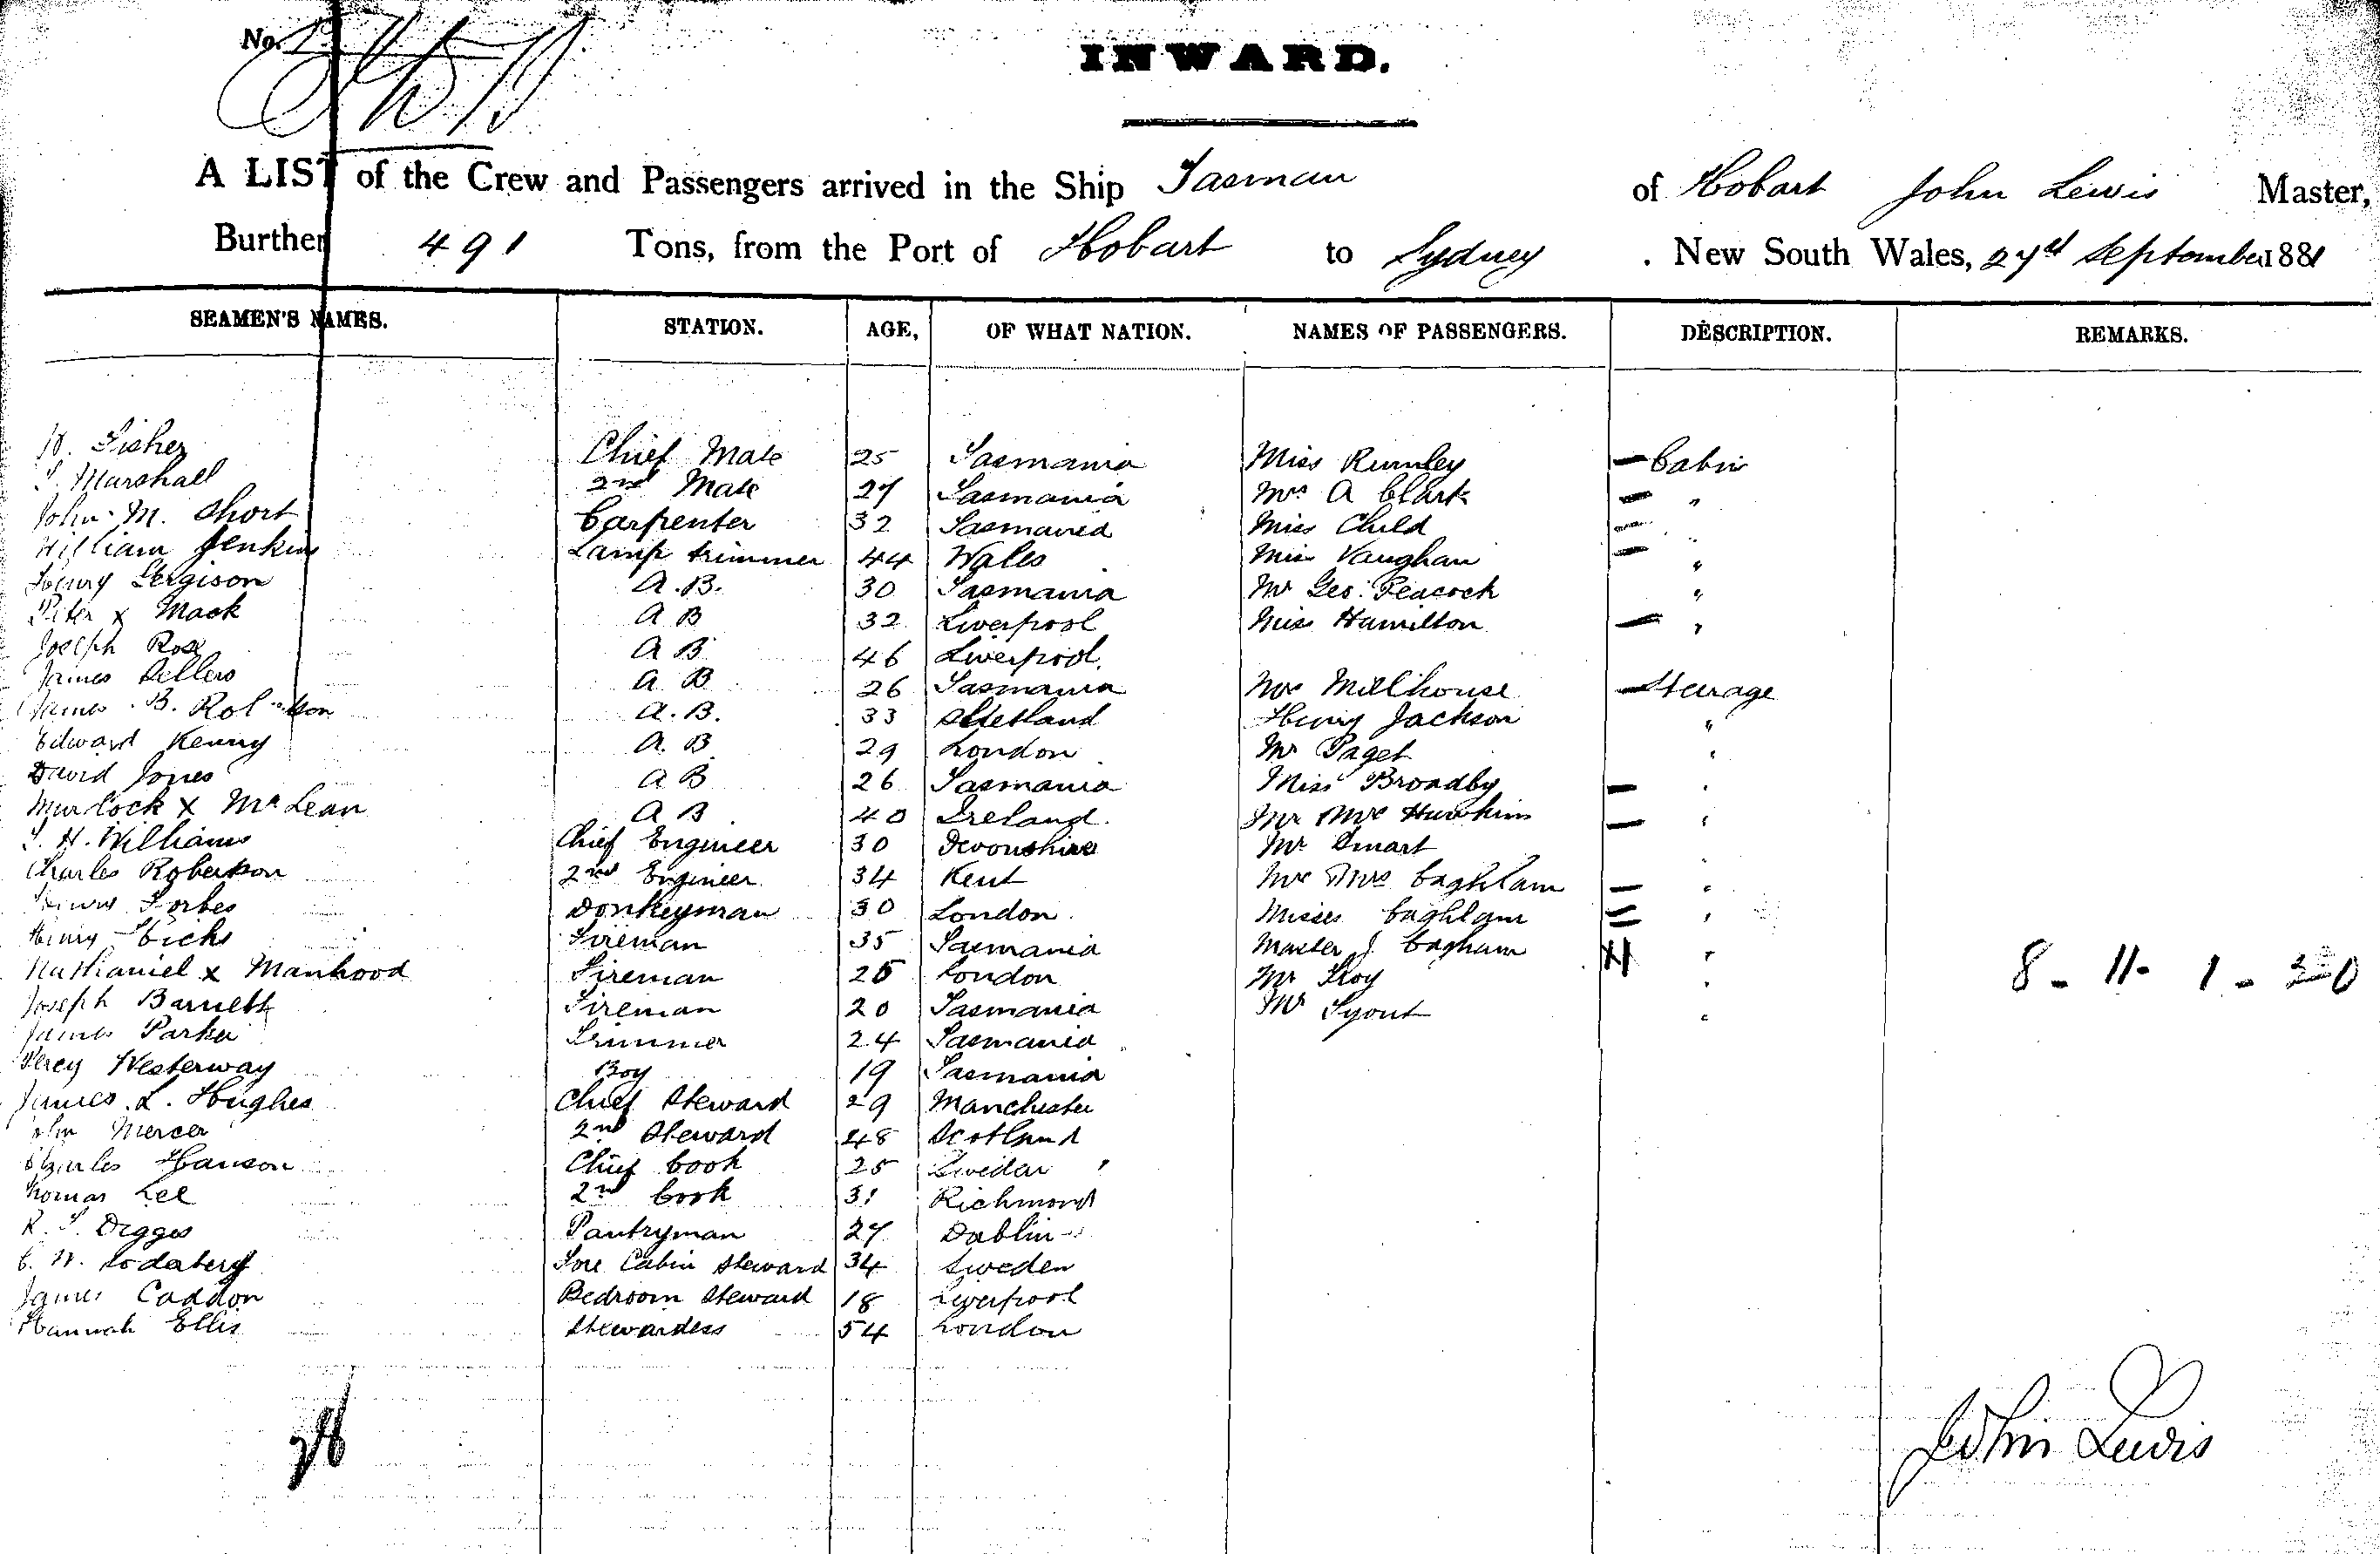 No.
INWARD.
A LIST of the Crew and Passengers arrived in the Ship Tasman of Hobart John Lewis Master,
Burthen 491 Tons, from the Port of Hobart to Sydney . New South Wales, 27th September 1881
SEAMEN'S NAMES. STATION. AGE, OF WHAT NATION. NAMES OF PASSENGERS. DESCRIPTION. REMARKS.
Fisher Chief Mate 25 Tasmania Miss Rumley — Cabin
Marshall 2nd Mate 27 Tasmania Mrs A Clark — "
John M. Short Carpenter 32 Tasmania Miss Child — "
William Jenkins Lamp trimmer 44 Wales Miss Vaughan — "
Henry Lergison A.B. 30 Tasmania Mr Geo: Peacock "
Peter x Mack A B 32 Liverpool Miss Hamilton — "
Joseph Rose A B 46 Liverpool.
James Sellers A. B 26 Tasmania Mrs Millhouse — Steerage
James B. A.B. 33 Shetland Henry Jackson "
Edward Kenny A. B 29 London Mr Paget "
David Jones A B 26 Tasmania Miss Broadby — "
Murdock x McLean A B 40 Ireland. Mr Mrs Hawkins — "
H. Williams Chief Engineer 30 Devonshire Mr Smart "
Charles Robertson 2nd Engineer 34 Kent Mr Mrs — "
Forbes Donkeyman 30 London Misses "
Henry Hicks Fireman 35 Tasmania Master J. "
Nathaniel x Manhood Fireman 25 London Mr Troy " 8 - 11 - 1 -
Joseph Barnett Fireman 20 Tasmania Mr "
James Parker Trimmer 24 Tasmania
Percy Westerway Boy 19 Tasmania
James L. Hughes Chief Steward 29 Manchester
John Mercer 2nd Steward 48 Scotland
Charles Hanson Chief Cook 25 Sweden
Thomas Lee 2nd Cook 31 Richmond
R. T. Digges Pantryman 27 Dublin
C. W. Sodaberg Fore Cabin Steward 34 Sweden
James Caddon Bedroom Steward 18 Liverpool
Hannah Ellis Stewardess 54 London
John Lewis